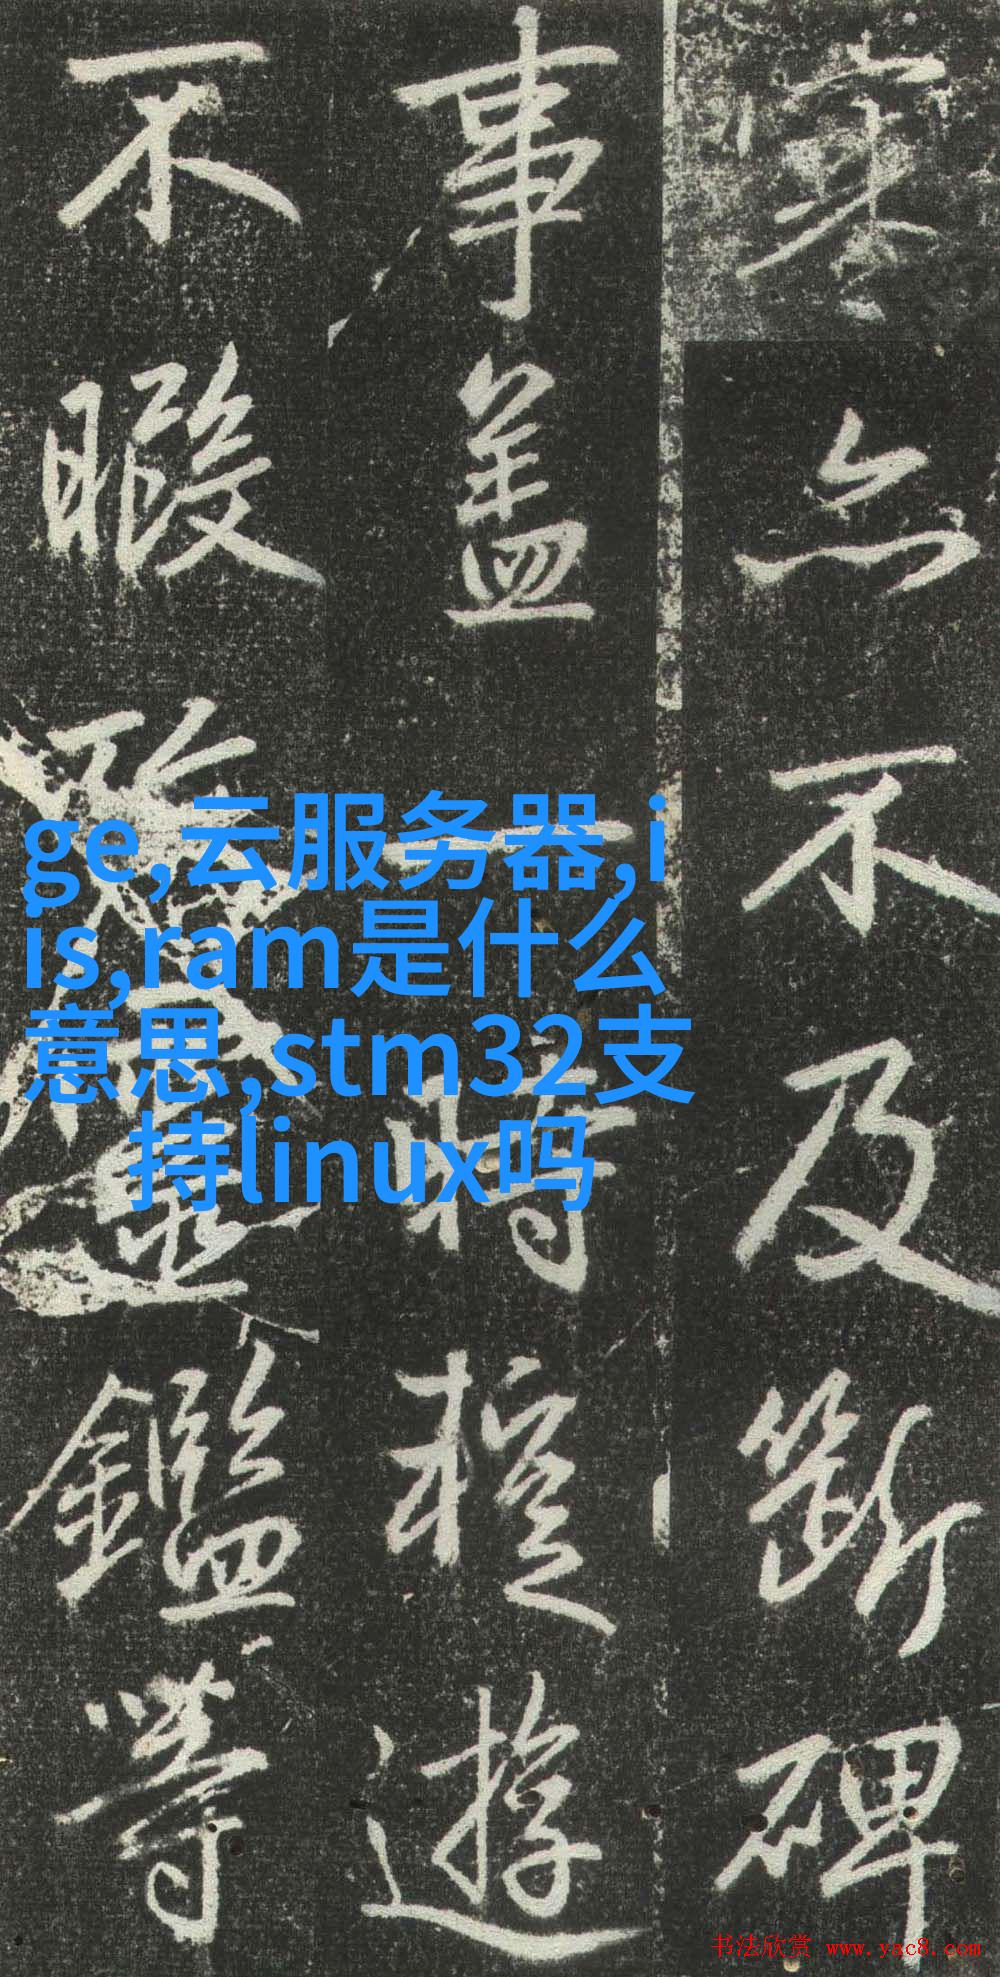 寒亦不及斷碑
事蓋一時遊
不暇鑑等
ge,云服务器,i
is,ram是什么
意思,stm32支
持linux吗
书法欣赏 www.yac8.com